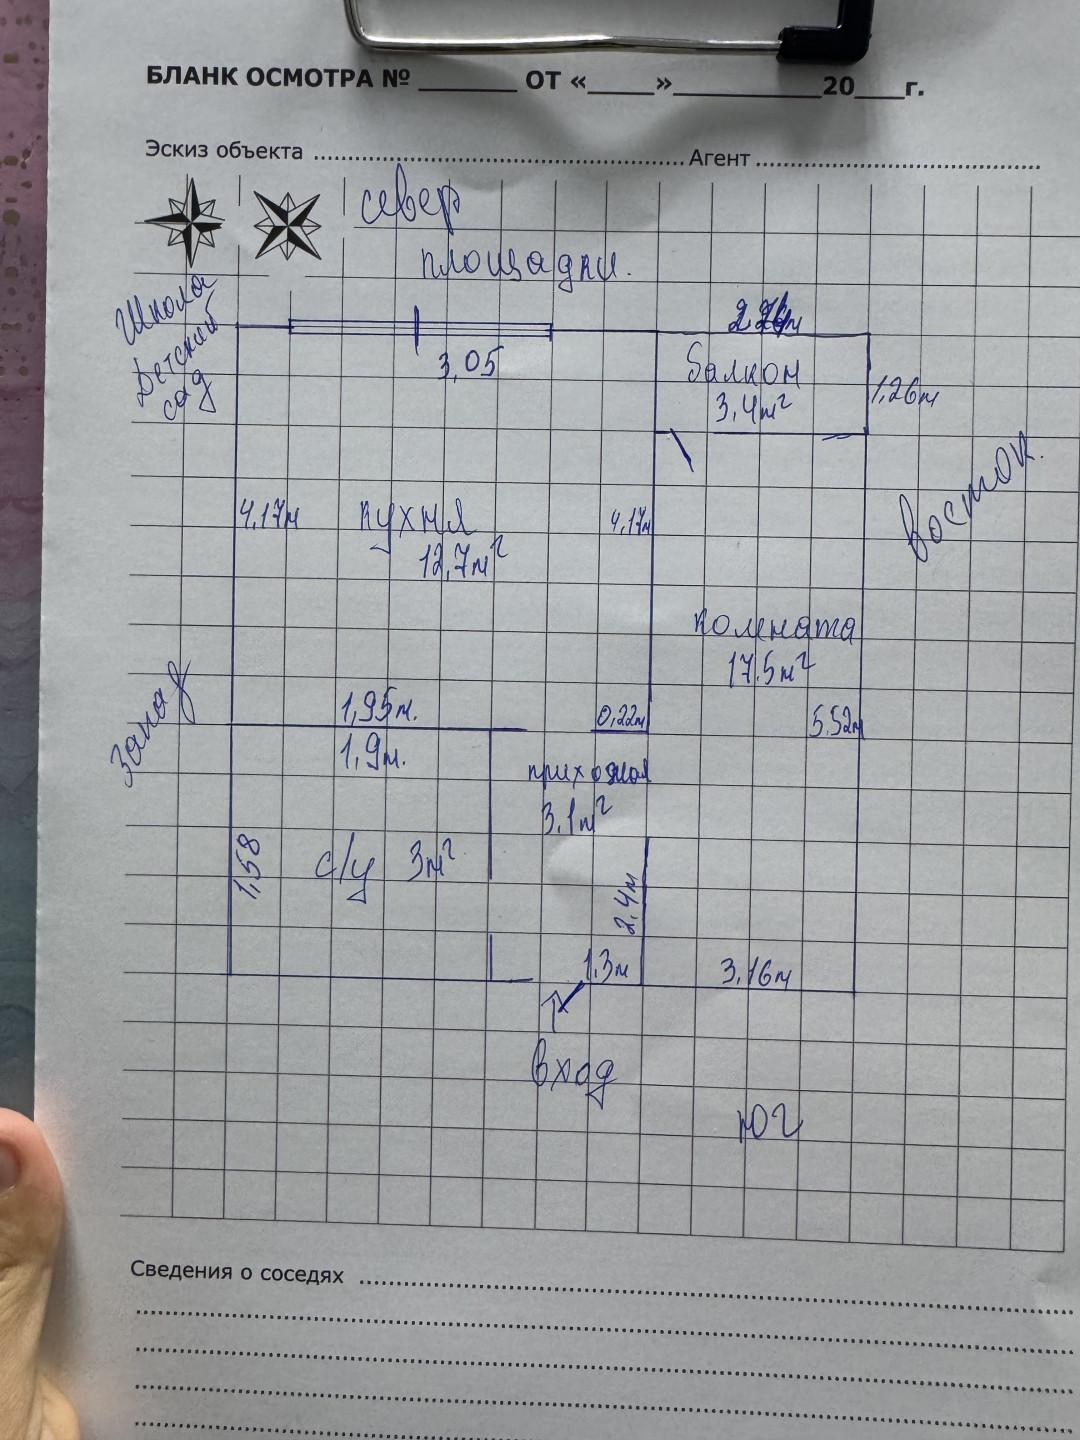 БЛАНК ОСМОТРА № ________ ОТ «_____»___________20____г.
Эскиз объекта ........................................ Агент ..............................
север
площадки.
Школа
Детский
сад
3,05
балкон
3,4м²
1,26м
восток.
4,17м
кухня
12,7м²
4,17м
комната
17,5м²
Запад
1,95м.
0,22м
5,52м
1,9м.
прихожая
3,1м²
1,58
с/у 3м²
2,4м
1,3м
3,16м
вход
Юг
Сведения о соседях ........................................